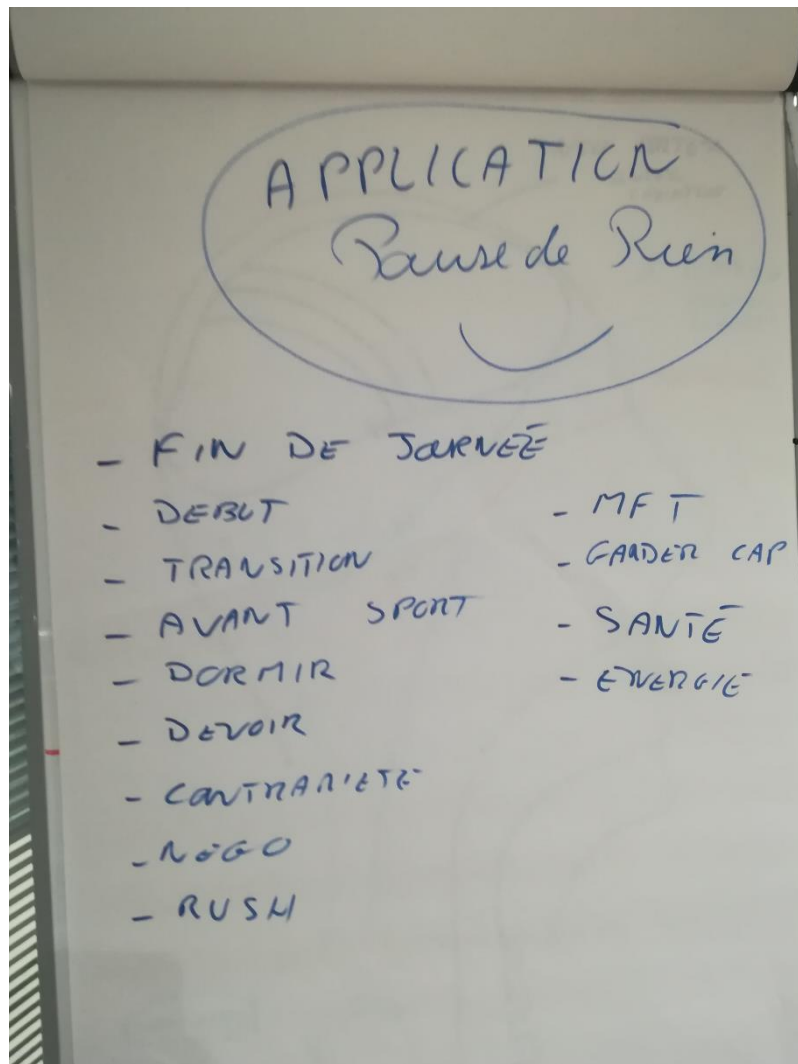 APPLICATION
Pause de Rien
- FIN DE JOURNEÉ
- DEBUT
- TRANSITION
- AVANT SPORT
- DORMIR
- DEVOIR
- CONTRARIETE
- NEGO
- RUSH
- MFT
- GARDER CAP
- SANTÉ
- ENERGIE